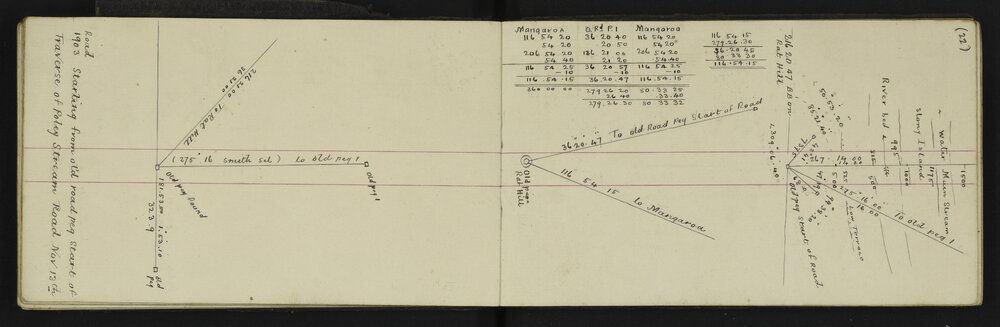 Traverse of Poley Stream Road Nov 13th
1903 Starting from old road peg start of
Road
216 . 31 . 00
36 31 00
To Rat Hill
( 275° 16 Smeth sel ) to old peg 1
old peg 1
old peg found
181.53.00 1.53.10
32.39
old
peg
Mangaroa O. Rd P. 1 Mangaroa
116 54 20 36 20 40 116 54 20
54 20 20 50 54 20
206 54 20 126 21 00 206 54 20
54 40 21 20 54.40
116 54 25 36 20 57 116 54 25
—10 —10 —10
116 . 54 . 15 36 . 20 . 47 116 . 54 . 15
360 00 00 279 26 20 80 . 33 25
26 40 33.40
279 . 26 . 30 80 33 32
116 54 15
279 . 26 . 30
36 . 20 45
80 33 30
116 . 54 . 15
36 20 . 47 To old Road Peg Start of Road
old peg
Rat Hill
116° 54 15
to Mangaroa
(22)
216 20 47 BB on
Rat Hill
L 309 . 06 . 40
50 . 53 . 20
267 14 00
275 16 00
500
Low Terrace
old peg start of Road
To old peg 1
River bed
995
1000
Stony Island
1175
Water Main Stream
1500